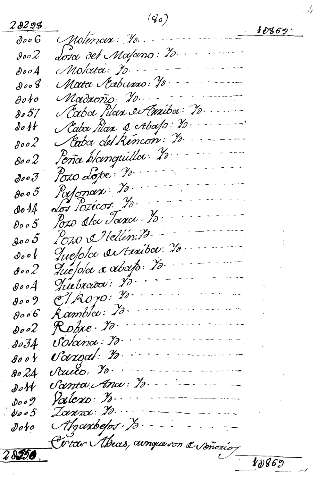 (80)
28298 18869
8006 Molinar: Yd
8002 Losa del Masano: Yd
8004 Molata: Yd
8008 Mata Caburro: Yd
8040 Madroño: Yd
8057 Naba Pilar de Arriba: Yd
8044 Naba Pilar de Abajo: Yd
8002 Naba del Rincon: Yd
8002 Peña blanquilla: Yd
8003 Pozo Lope: Yd
8005 Pajonar: Yd
8044 Los Pozicos: Yd
8005 Pozo de la Zarza Yd
8005 Pozo de Hellin: Yd
8001 Quejola de Arriba: Yd
8002 Quejola de abajo: Yd
8004 Quebrada: Yd
8009 El Royo: Yd
8006 Rambla: Yd
8002 Roble: Yd
8034 Solana: Yd
8004 Sargal: Yd
8024 Sauco: Yd
8044 Santa Ana: Yd
8009 Valero: Yd
8005 Zarza: Yd
8040 Algarbejos: Yd
Estas Aldeas, aunque son de Señorios
18869